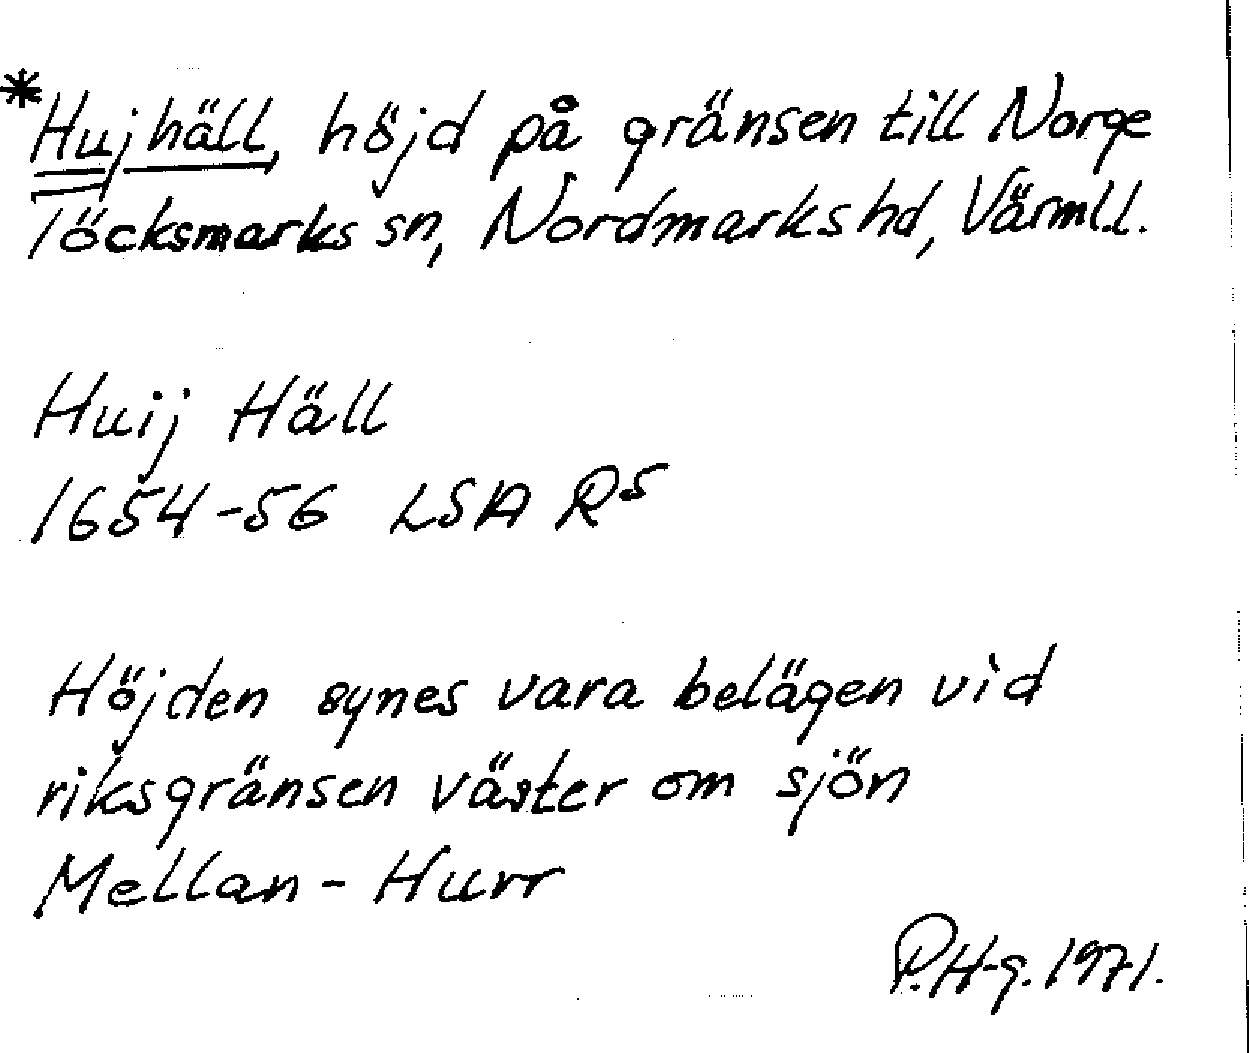 *Hujhäll, höjd på gränsen till Norge
Töcksmarks sn, Nordmarks hd, Värml.l.
Huij Häll
1654-56 LSA R5
Höjden synes vara belägen vid
riksgränsen väster om sjön
Mellan-Hurr
P.H-g. 1971.